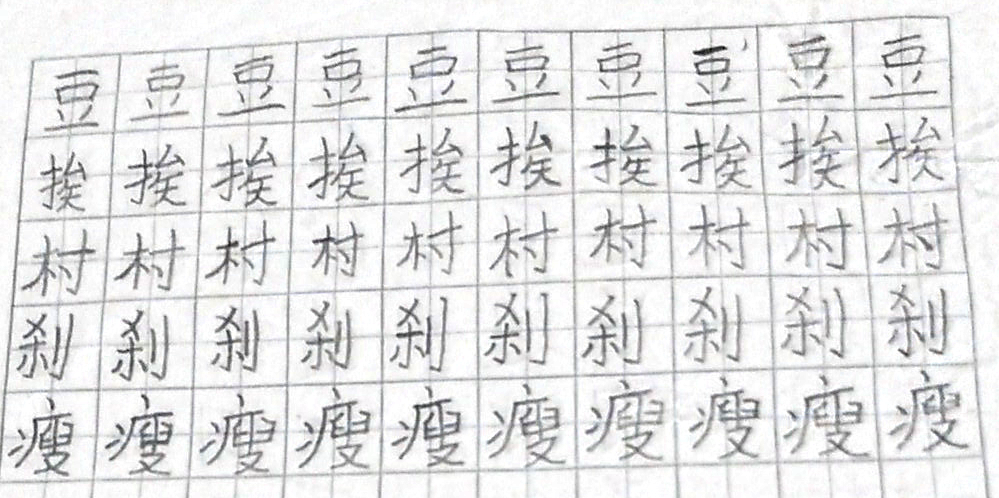 豆豆豆豆豆豆豆豆豆豆
挨挨挨挨挨挨挨挨挨挨
村村村村村村村村村村
刹刹刹刹刹刹刹刹刹刹
瘦瘦瘦瘦瘦瘦瘦瘦瘦瘦